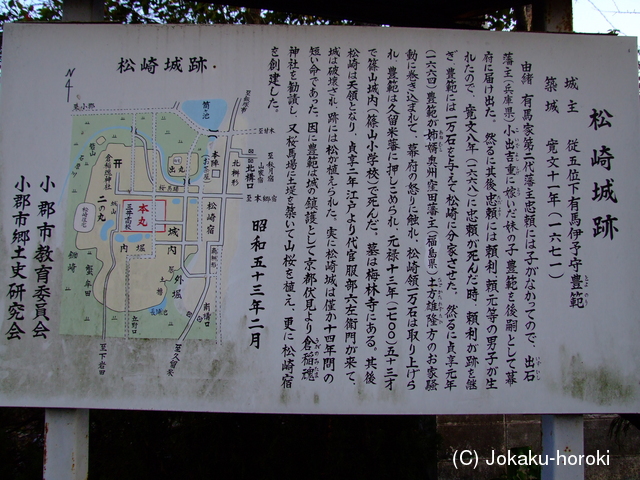 松崎城跡
城主 従五位下有馬伊予守豊範
築城 寛文十一年(一六七一)
由緒 有馬家第二代藩主忠頼には子がなかってので、出石
藩主(兵庫県)小出吉重に嫁いだ妹の子豊範を後嗣として幕
府に届け出た。然るに其後忠頼には頼利、頼元等の男子が生
れたので、寛文八年(一六六八)に忠頼が死んだ時、頼利が跡を継
ぎ、豊範には一万石を与えて松崎に分家させた。然るに貞享元年
(一六六四)豊範が姉婿奥州窪田藩主(福島県)土方雄隆方のお家騒
動に巻き込まれて、幕府の怒り触れ、松崎領一万石は取り上げら
れ、豊範は久留米藩に押しこめられ、元禄十三年(一七〇〇)五十三才
で篠山城内(篠山小学校)で死んだ。墓は梅林寺にある。其後
松崎は天領となり、貞享三年江戸より代官服部六左衛門が来て、
城は破壊され、跡には松が植えられた。実に松崎城は僅か十四年間の
短い命であった。因に豊範は城の鎮護として京都伏見より倉稲魂
神社を勧請し、又桜馬場に土堤を築いて山桜を植え、更に松崎宿
を創建した。
昭和五十三年二月
小郡市教育委員会
小郡市郷土史研究会
松崎城跡
N
至小郡
開
倉稲魂神社
二の丸
出丸
本丸
三井高校
城山
城内
堀内
外堀
土堤
本陣
松崎宿
北枡形
北構口
南枡形
南構口
至松崎
至甘木
至秋月宿
山家宿
至本郷宿
至久留米
至下岩田